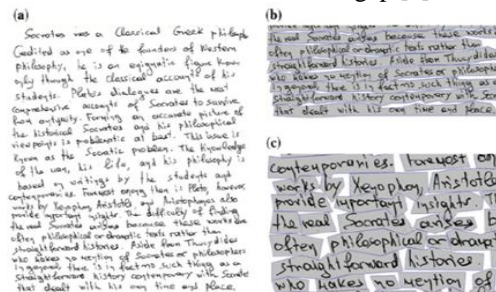 (a)
Socrates was a Classical Greek philosoph
Credited as one of the founders of Western
philosophy, he is an enigmatic figure known
only though the classical accounts of his
students. Plato's dialogues are the most
comprehensive accounts of Socrates to survive
from antiquity. Forming an accurate picture of
the historical Socrates and his philosophical
viewpoints is problematic at best. This issue is
known as the Socratic problem. The knowledge
of the man, his life, and his philosophy is
based on writings by the students and
contemporaries. Foremost among them is Plato, however,
works by Xenophon, Aristotle, and Aristophanes also
provide important insights. The difficulty of finding
the real Socrates arises because these works are
often philosophical or dramatic texts rather than
straightforward histories. Aside from Thucydides
who makes no mention of Socrates or philosophers
in general there is in fact no such thing as a
straightforward history contemporary with Socrate
that dealt with his own time and place.
(b)
the real Socrates arises because these works
often philosophical or dramatic texts rather than
straightforward histories. Aside from Thucydides
who makes no mention of Socrates or philosophe
in general there is in fact no such thing as a
straightforward history contemporary with Socr
that dealt with his own time and place
(c)
contemporaries. Foremost am
works by Xenophon, Aristotle
provide important insights. Th
the real Socrates arises b
often philosophical or dramat
straightforward histories.
who makes no mention of